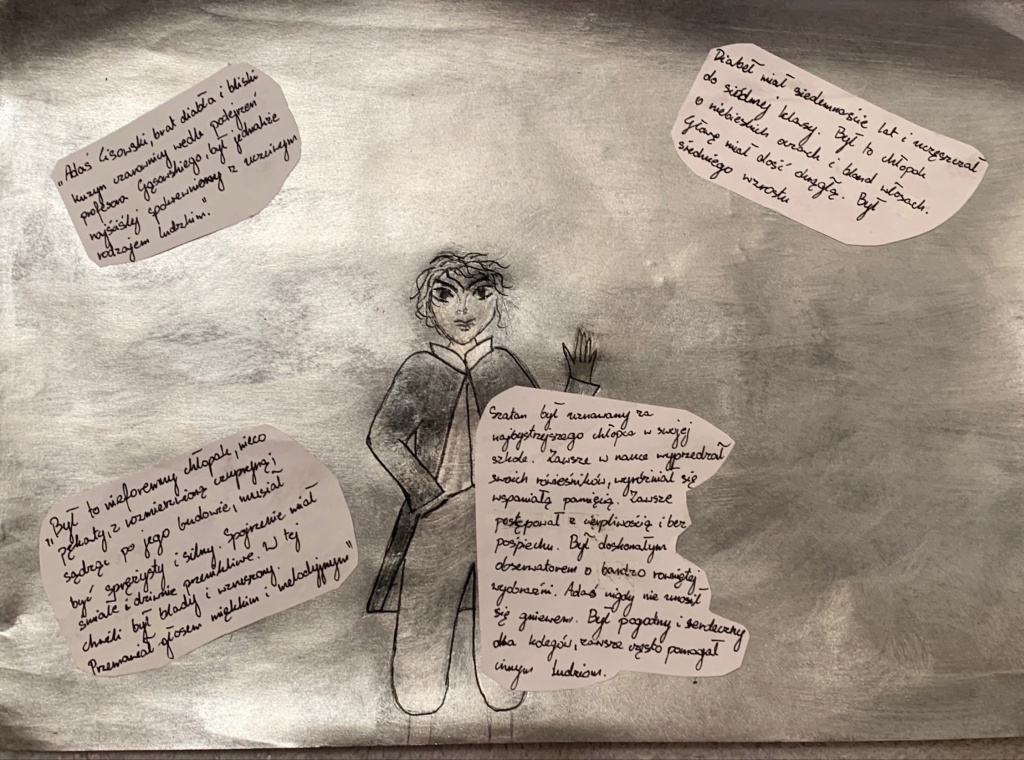 "Adaś Cisowski, brat diabła i bliski
kuzyn czarownicy wedle podejrzeń
profesora Gąsowskiego, był jednakże
najściślej spokrewniony z uczciwym
rodzajem ludzkim."
Diabeł miał siedemnaście lat i uczęszczał
do siódmej klasy. Był to chłopak
o niebieskich oczach i blond włosach.
Głowę miał dość okrągłą. Był
średniego wzrostu
"Był to nieforemny chłopak, nieco
pękaty, z rozmierzwioną czupryną;
sądząc po jego budowie, musiał
być sprężysty i silny. Spojrzenie miał
śmiałe i dziwnie przenikliwe. W tej
chwili był blady i wzruszony.
Przemawiał głosem miękkim i melodyjnym"
Szatan był uznawany za
najbystrzejszego chłopca w swojej
szkole. Zawsze w nauce wyprzedzał
swoich rówieśników, wyróżniał się
wspaniałą pamięcią. Zawsze
postępował z cierpliwością i bez
pośpiechu. Był doskonałym
obserwatorem o bardzo rozwiniętej
wyobraźni. Adaś nigdy nie unosił
się gniewem. Był pogodny i serdeczny
dla kolegów, zawsze często pomagał
innym ludziom.